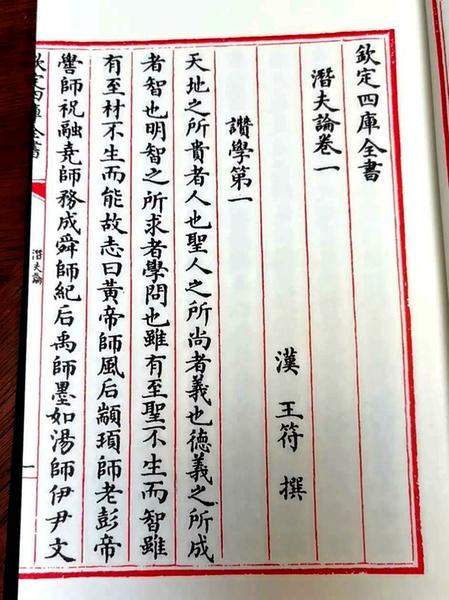 欽定四庫全書
潛夫論卷一
漢 王符 撰
讚學第一
天地之所貴者人也聖人之所尚者義也德義之所成
者智也明智之所求者學問也雖有至聖不生而智雖
有至材不生而能故志曰黃帝師風后顓頊師老彭帝
嚳師祝融堯師務成舜師紀后禹師墨如湯師伊尹文
欽定四庫全書
潛夫論
一